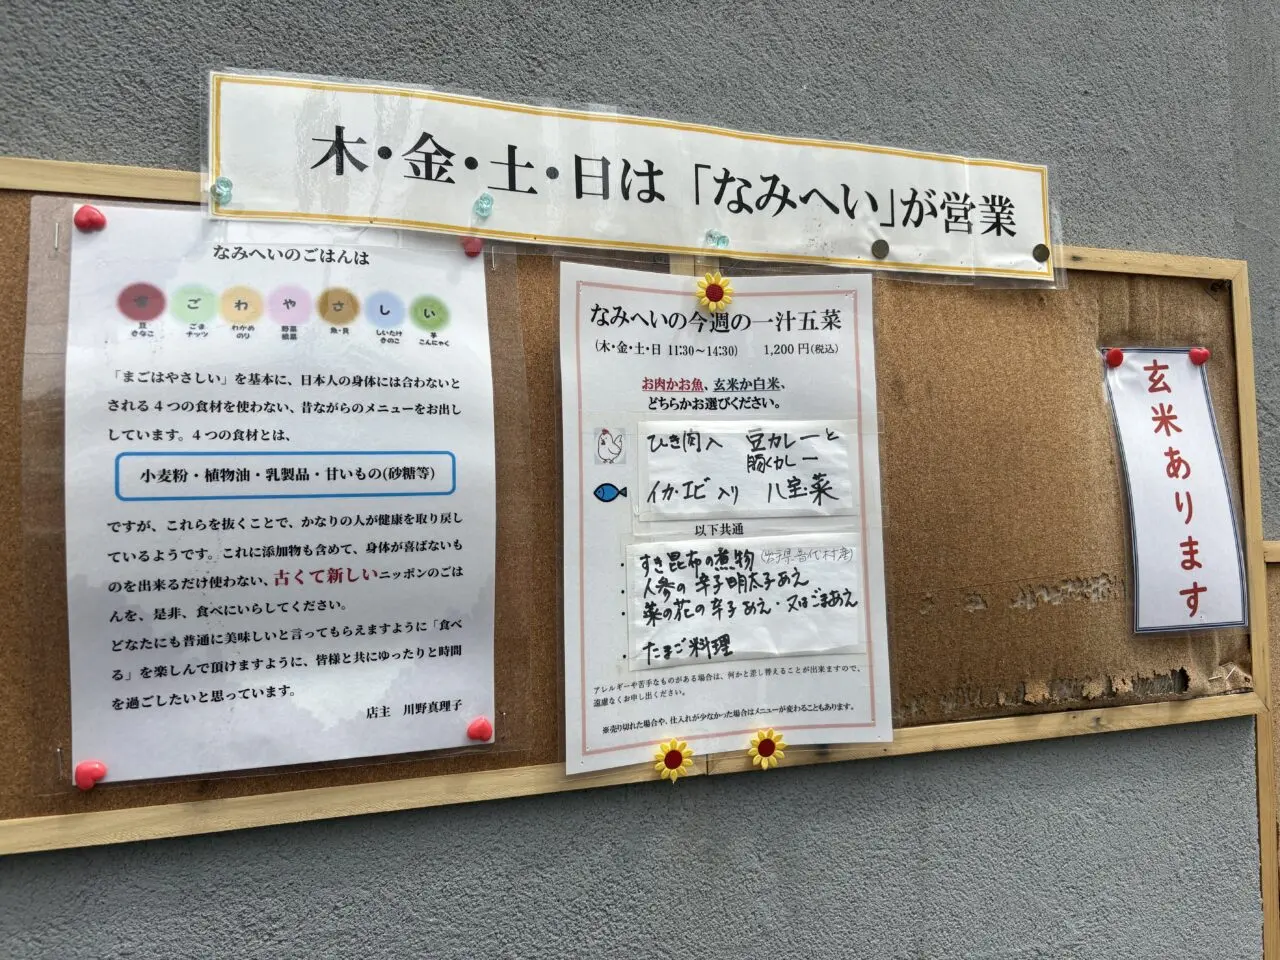 木・金・土・日は「なみへい」が営業
なみへいのごはんは
ま ご わ や さ し い
豆 きなこ
ごま ナッツ
わかめ のり
野菜 根菜
魚・貝
しいたけ きのこ
芋 こんにゃく
「まごはやさしい」を基本に、日本人の身体には合わないと
される4つの食材を使わない、昔ながらのメニューをお出し
しています。4つの食材とは、
小麦粉・植物油・乳製品・甘いもの(砂糖等)
ですが、これらを抜くことで、かなりの人が健康を取り戻し
ているようです。これに添加物も含めて、身体が喜ばないも
のを出来るだけ使わない、古くて新しいニッポンのごは
んを、是非、食べにいらしてください。
どなたにも普通に美味しいと言ってもらえますように「食べ
る」を楽しんで頂けますように、皆様と共にゆったりと時間
を過ごしたいと思っています。
店主 川野真理子
なみへいの今週の一汁五菜
(木・金・土・日 11:30〜14:30) 1,200円(税込)
お肉かお魚、玄米か白米、
どちらかお選びください。
ひき肉入 豆カレーと
豚くカレー
イカ・エビ入り 八宝菜
以下共通
・すき昆布の煮物(岩手県普代村産)
・人参の辛子明太子あえ
・菜の花の辛子あえ・又はごまあえ
・たまご料理
アレルギーや苦手なものがある場合は、何かと差し替えることが出来ますので、
遠慮なくお申し出ください。
※売り切れた場合や、仕入れが少なかった場合はメニューが変わることもあります。
玄米あります